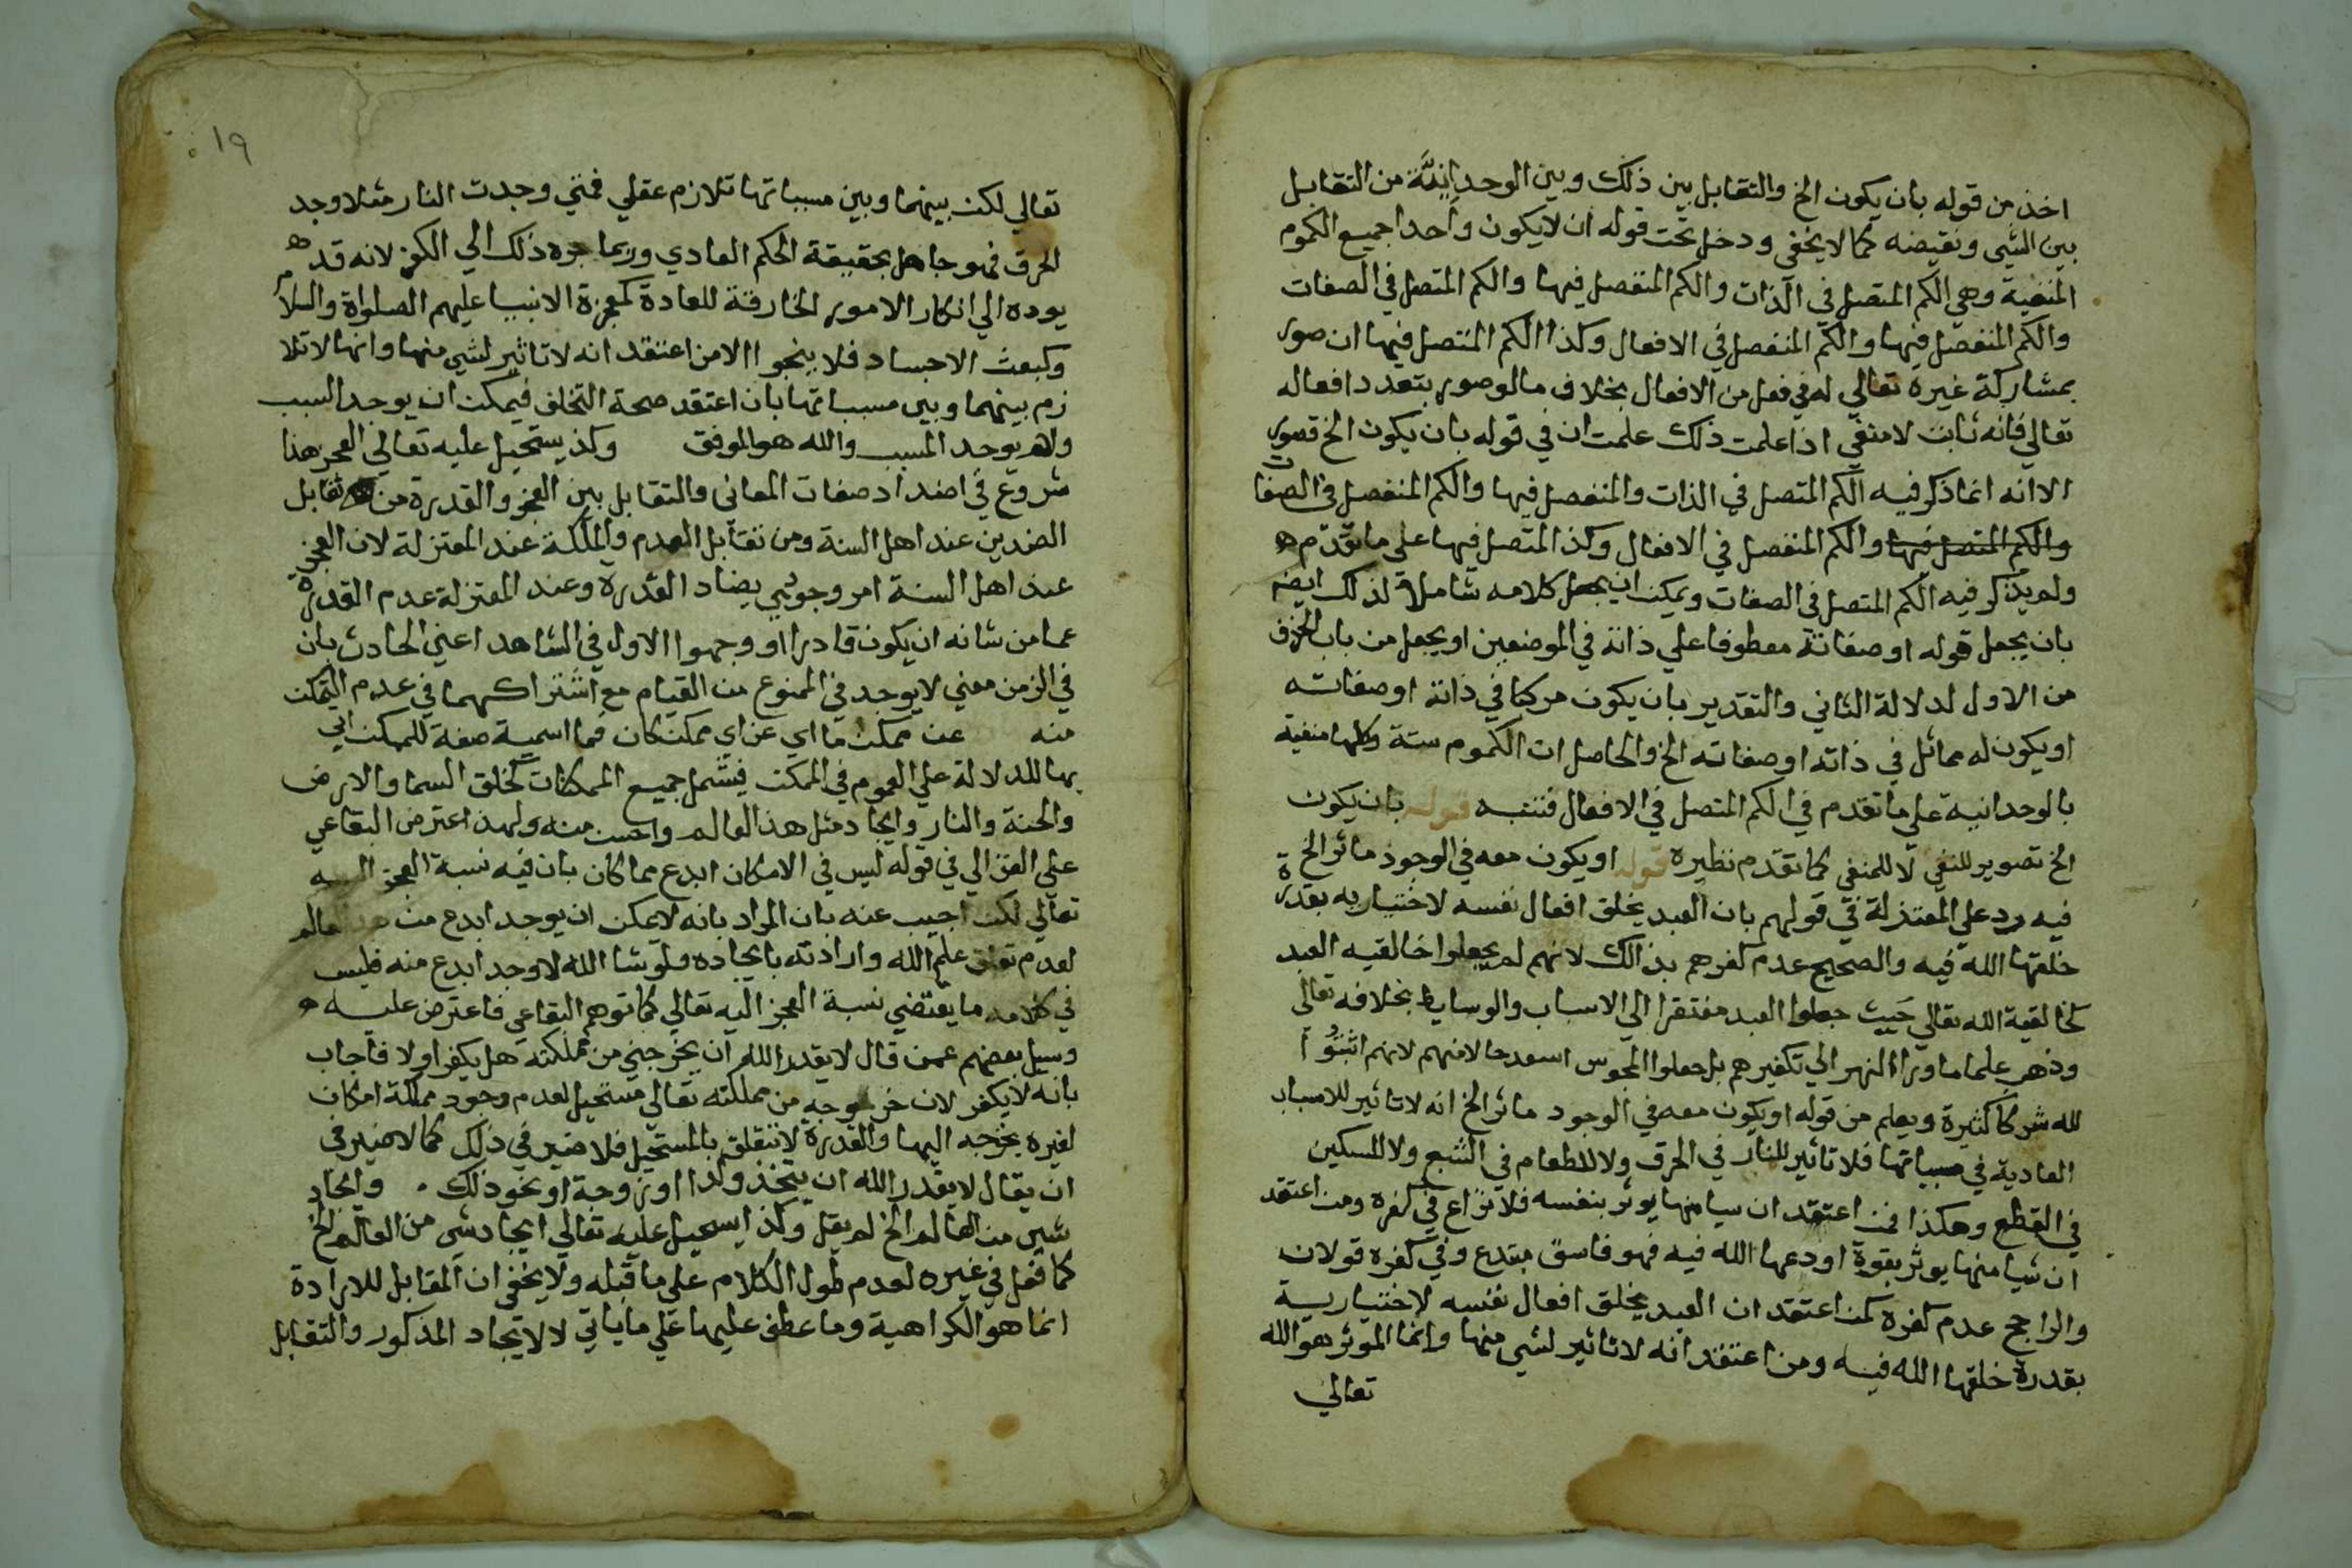 اخذ من قوله بان يكون الخ والتقابل بين ذلك وبين الوحدانية من التقابل
بين الشي ونقيضه كما لا يخفي ودخل تحت قوله ان لا يكون واحدا جميع الكموم
المنفية وهي الكم المتصل في الذات والكم المنفصل فيها والكم المتصل في الصفات
والكم المنفصل فيها والكم المنفصل في الافعال وكذا الكم المتصل فيها ان صور
بمشاركة غيره تعالي له في فعل من الافعال بخلاف ما لو صور بتعدد افعاله
تعالي فانه ثابت لا منفي اذا علمت ذلك علمت ان في قوله بان يكون الخ قصور
الا انه انما ذكر فيه الكم المتصل في الذات والمنفصل فيها والكم المنفصل في الصفات
والكم المتصل فيها والكم المنفصل في الافعال وكذ المتصل فيها علي ما تقدم
ولم يذكر فيه الكم المتصل في الصفات ويمكن ان يجعل كلامه شاملا لذلك ايضه
بان يجعل قوله او صفاته معطوفا علي ذاته في الموضعين او يجعل من باب الحذف
من الاول لدلالة الثاني والتقدير بان يكون مركبا في ذاته او صفاته
او يكون له مماثل في ذاته او صفاته الخ والحاصل ان الكموم ستة وكلها منفية
بالوحدانية علي ما تقدم في الكم المتصل في الافعال فتنبه قوله بان يكون
الخ تصوير للنفي لا للمنفي كما تقدم نظيره قوله او يكون معه في الوجود ماثر الخ
فيه رد علي المعتزلة في قولهم بان العبد يخلق افعال نفسه لاختياريه بقدرة
خلقها الله فيه والصحيح عدم كفرهم بذالك لانهم لم يجعلوا خالقيه العبد
كخالقية الله تعالي حيث جعلوا العبد مفتقرا الي الاسباب والوسايط بخلافه تعالى
وذهب علما ما ورا النهر الي تكفيرهم بل جعلوا المجوس اسعد حالا منهم لانهم اثبتوا
لله شركا كثيرة ويعلم من قوله او يكون معه في الوجود ماثر الخ انه لا تاثير للاسباب
العادية في مسبباتها فلا تاثير للنار في الحرق ولا للطعام في الشبع ولا للسكين
في القطع وهكذا فمن اعتقد ان سيا منها يوثر بنفسه فلا نزاع في كفره ومن اعتقد
ان شيا منها يوثر بقوة اودعها الله فيه فهو فاسق مبتدع وفي كفره قولان
والراجح عدم كفره كمن اعتقد ان العبد يخلق افعال نفسه لاختيارية
بقدرة خلقها الله فيه ومن اعتقد انه لا تاثير لشي منها وانما الموثر هو الله
تعالي
١٩
تعالي لكن بينهما وبين مسبباتها تلازم عقلي فمتي وجدت النار مثلا وجد
الحرق فهو جاهل بحقيقة الحكم العادي وربما جره ذلك الي الكفر لانه قد
يوده الي انكار الامور الخارقة للعادة كمعجزة الانبيا عليهم الصلواة والسلام
وكبعث الاجساد فلا ينجوا الا من اعتقد انه لا تاثير لشي منها وانها لا تلا
زم بينهما وبين مسبباتها بان اعتقد صحة التخلف فيمكن ان يوجد السبب
ولم يوجد المسبب والله هو الموفق وكذ يستحيل عليه تعالي العجز هنا
شروع في اضداد صفات المعاني والتقابل بين العجز والقدرة من تقابل
الضدين عند اهل السنة ومن تقابل العدم والملكة عند المعتزلة لان العجز
عند اهل السنة امر وجودي يضاد القدرة وعند المعتزلة عدم القدرة
عما من شانه ان يكون قادرا ووجهوا الاول في الشاهد اعني الحادث بان
في الزمن معني لا يوجد في الممنوع من القيام مع اشتراكهما في عدم التمكن
منه عن ممكن ما اي عن اي ممكن كان فما اسمية صفة للممكن اتي
بها للدلالة علي العموم في الممكن فيشمل جميع الممكنات كخلق السما والارض
والجنة والنار وايجاد مثل هذ العالم واحسن منه ولهذ اعترض البقاعي
علي الغزالي في قوله ليس في الامكان ابدع مما كان بان فيه نسبة العجز اليه
تعالي لكن اجيب عنه بان المراد بانه لا يمكن ان يوجد ابدع من هذ العالم
لعدم تعلق علم الله وارادته بايجاده ولو شا الله لاوجد ابدع منه فليس
في كلامه ما يقتضي نسبة العجز اليه تعالي كما توهم البقاعي فاعترض عليه
وسيل بعضهم عمن قال لا يقدر الله ان يخرجني من مملكته هل يكفر اولا فاجاب
بانه لا يكفر لان خروجه من مملكته تعالي مستحيل لعدم وجود مملكة امكان
لغيره يخرجه اليها والقدرة لا تتعلق بالمستحيل فلا ضير في ذلك كما لا ضير في
ان يقال لا يقدر الله ان يتخذ ولدا او زوجة او نحو ذلك . وايجاد
شي من العالم الخ لم يقل وكذ ايستحيل عليه تعالي ايجاد شي من العالم الخ
كما فعل في غيره لعدم طول الكلام علي ما قبله ولا يخفي ان المقابل للارادة
انما هو الكراهية وما عطف عليها علي ما ياتي لا لايجاد المذكور والتقابل